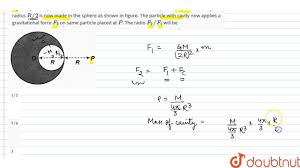 radius R/2 is now made in the sphere as shown in figure. The particle with cavity now applies a
gravitational force F₂ on same particle placed at P. The radio F₂ / F₁ will be
R
R
P
F₁ = GM/(2R)² × m
F₂ = F₁ + F_c
ρ = M / (4π/3 R³)
Mass of cavity = M / (4π/3 R³) × 4π/3 × R
doubtnut